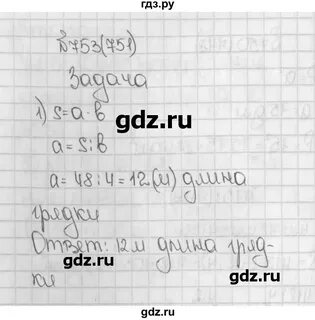 гдз.ру
№753(751)
Задача
1) S=a·b
gdz.ru
a=S:b
a=48:4=12(м) длина
gdz.ru
грядки
Ответ: 12м длина гряд-
ки
gdz.ru
gdz.ru